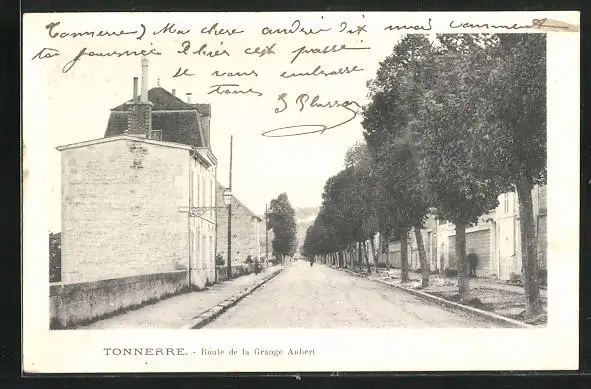 (Tonnerre) Ma chere andrée dit moi comment
ta journée d'hier c'est passée
Je vous embrasse
tous
TONNERRE. - Route de la Grange Aubert